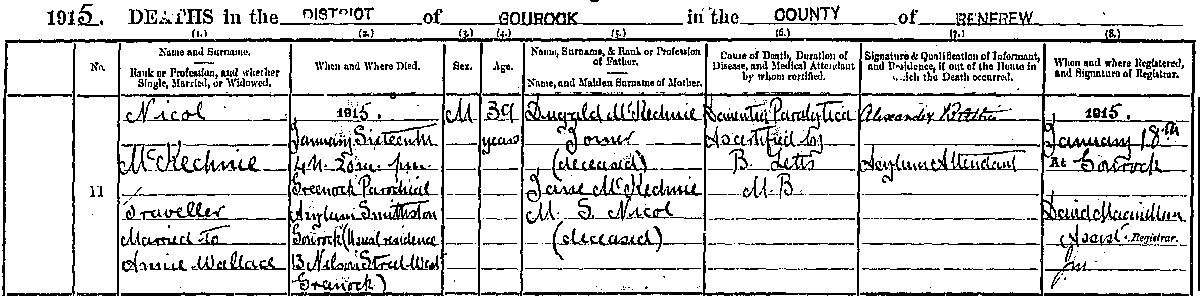 1915. DEATHS in the DISTRICT of GOUROCK in the COUNTY of RENFREW
(1.) (2.) (3.) (4.) (5.) (6.) (7.) (8.)
No.
Name and Surname.
Rank or Profession, and whether
Single, Married, or Widowed.
When and Where Died.
Sex.
Age.
Name, Surname, & Rank or Profession
of Father.
Name, and Maiden Surname of Mother.
Cause of Death, Duration of
Disease, and Medical Attendant
by whom certified.
Signature & Qualification of Informant,
and Residence, if out of the House in
which the Death occurred.
When and where Registered,
and Signature of Registrar.
11
Nicol
McKechnie
Traveller
Married to
Annie Wallace
1915.
January Sixteenth
4 h. 20m. p.m.
Greenock Parochial
Asylum Smithston
Gourock (Usual residence
13 Nelson Street West
Greenock)
M
39
years
Dugald McKechnie
Joiner
(deceased)
McKechnie
M. S. Nicol
(deceased)
Paralytica
As certified by
B. Letts
M.B.
Alexander
Asylum Attendant
1915.
January 18th
At Gourock
David Macmillan
Assist. Registrar.